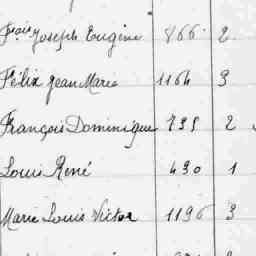 Frçois Joseph Eugène 866 2
Félix Jean Marie 1164 3
François Dominique 735 2
Louis René 430 1
Marie Louis Victor 1196 3